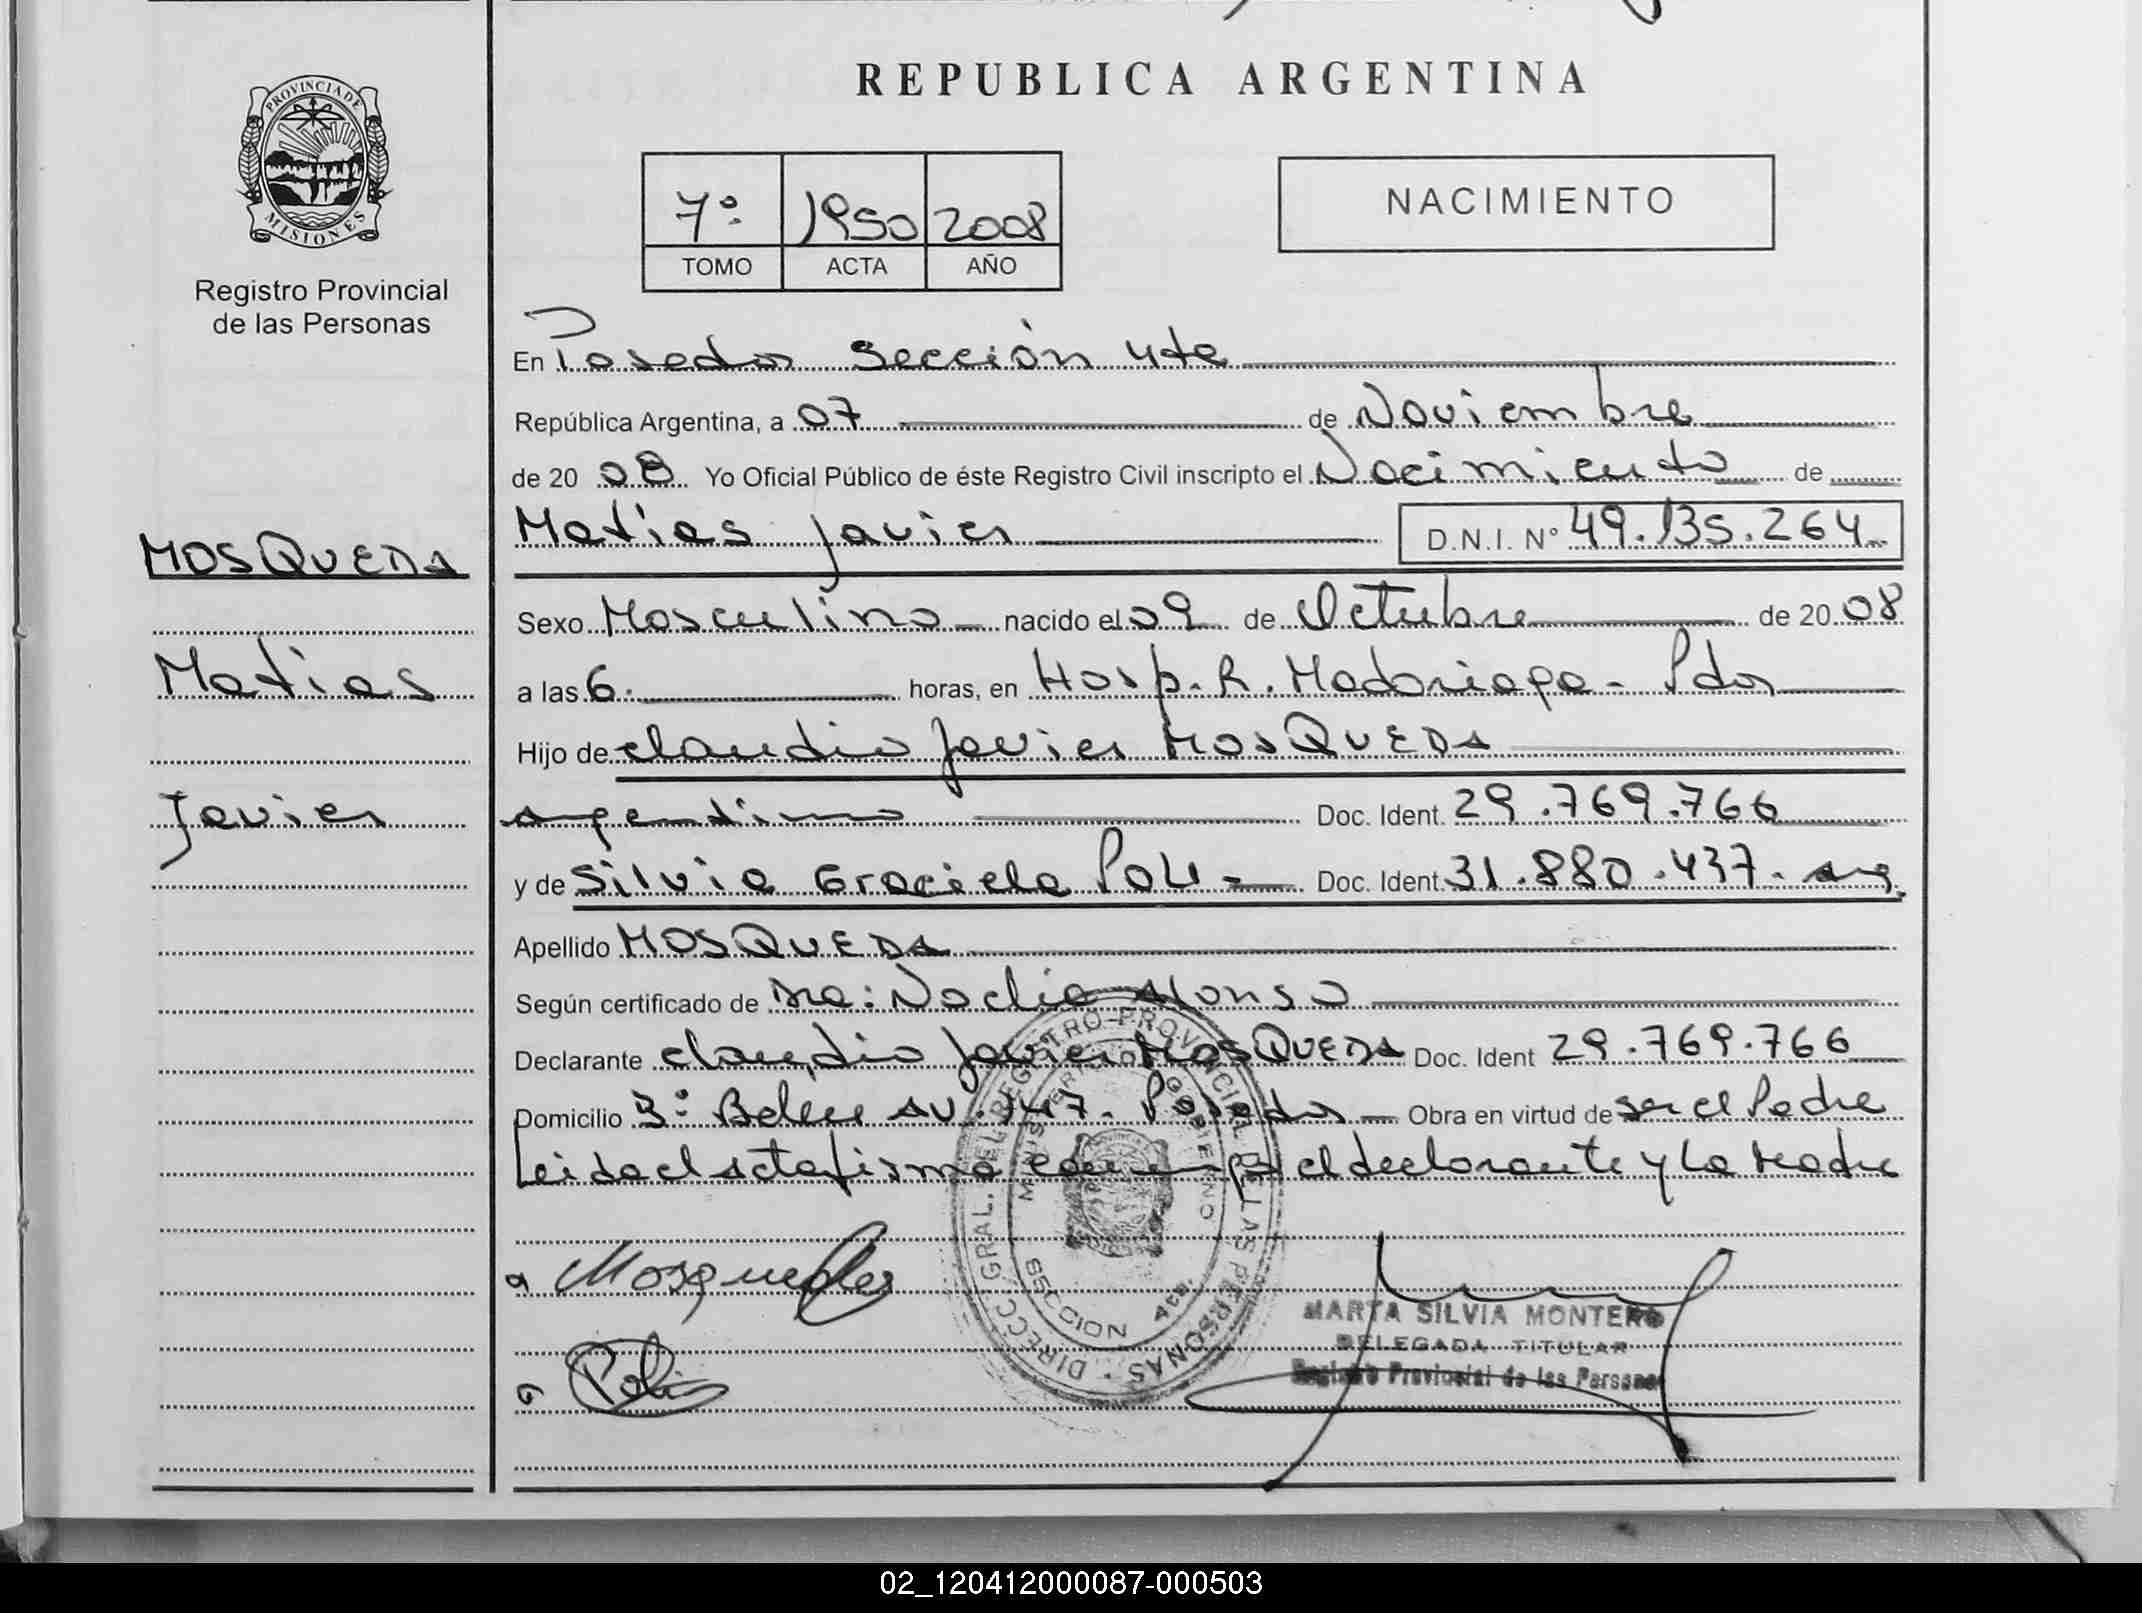 REPUBLICA ARGENTINA
PROVINCIA DE
MISIONES
Registro Provincial
de las Personas
7º 1950 2008
TOMO ACTA AÑO
NACIMIENTO
En Posadas Sección 4ta
República Argentina, a 07 de Noviembre
de 20 08 Yo Oficial Público de éste Registro Civil inscripto el Nacimiento de
Matias Javier D.N.I. Nº 49.135.264
MOSQUEDA
Matias
Javier
Sexo Masculino nacido el 09 de Octubre de 20 08
a las 6. horas, en Hosp. R. Madariaga - Pdas
Hijo de Claudio Javier MOSQUEDA
argentino Doc. Ident. 29.769.766
y de Silvia Graciela Doc. Ident. 31.880.437. arg.
Apellido MOSQUEDA
Según certificado de Dra: Nadia Alonso
Declarante Claudio Javier MOSQUEDA Doc. Ident 29.769.766
Domicilio Bº Belen Av. 147. Posadas Obra en virtud de ser el Padre
Leida el acta firma el declarante y La Madre
DIRECC. GRAL. DEL REGISTRO PROVINCIAL DE LAS PERSONAS
MINISTERIO DE GOBIERNO
SECCION 4ta.
Mosqueda
MARTA SILVIA MONTERO
DELEGADA TITULAR
Registro Provincial de las Personas
02_120412000087-000503